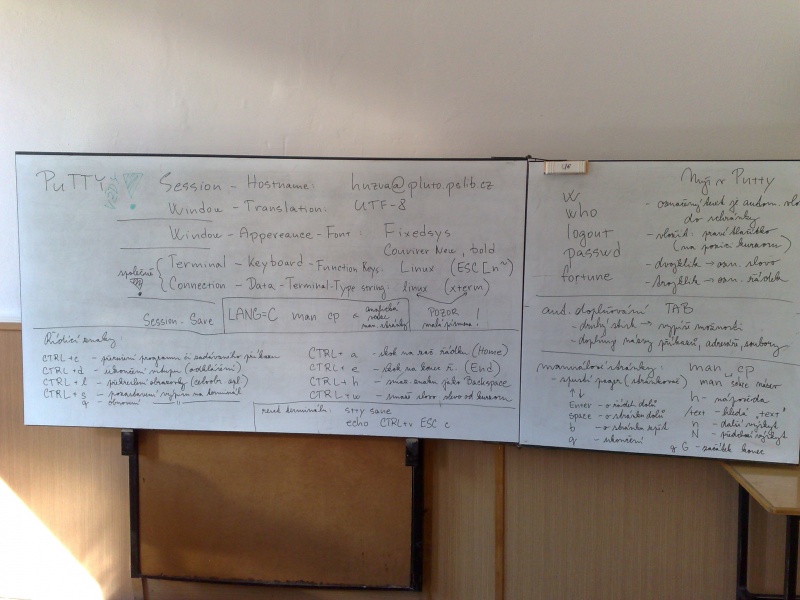 PuTTY
Session - Hostname: huzva@pluto.pslib.cz
Window - Translation: UTF-8
Window - Appereance - Font: Fixedsys
Couriver New, bold
společně
Terminal - Keyboard - Function Keys: Linux (ESC[n~)
Connection - Data - Terminal-Type string: linux (xterm)
Session - Save
LANG=C man cp
anglická verze man. stránky
POZOR malá písmena!
Řídící znaky
CTRL+c - přerušení programu či zadávaného příkazu
CTRL+d - ukončení vstupu (odhlášení)
CTRL+l - překreslení obrazovky
CTRL+s - pozastavení výpisu na terminál
q - obnovení —"—
CTRL+a - skok na zač. řádku (Home)
CTRL+e - skok na konec ř. (End)
CTRL+h - smaž. znaku jako Backspace
CTRL+w - smaže slovo vlevo od kurzoru
reset terminálu: stty sane
echo CTRL+v ESC c
Myš v Putty
w
who
logout
passwd
fortune
- označený text je autom.
do schránky
- vložit: pravé tlačítko
(na pozici kurzoru)
- dvojklik → ozn. slovo
- trojklik → ozn. řádek
aut. doplňování TAB
- druhý stisk → výpis možností
- doplňuj názvy příkazů, adresářů, souborů
manuálové stránky: man cp
- spustí pager (stránkovač) man sekce název
↑↓
Enter - o řádek dolů
space - o stránku dolů
b - o stránku zpět
q - ukončení
h - nápověda
/text - hledá "text"
n - další výskyt
N - předchozí výskyt
g G - začátek konec